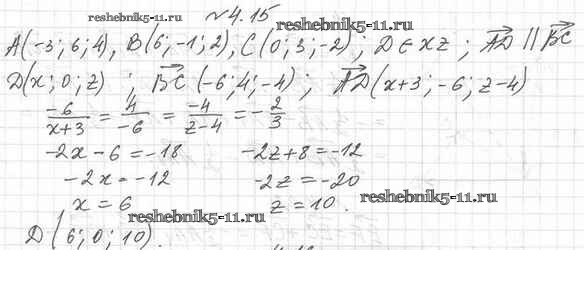 №4.15
reshebnik5-11.ru reshebnik5-11.ru
A(-3; 6; 4), B(6; -1; 2), C(0; 3; -2); D ∈ xz; AD→ ∥ BC→
D(x; 0; z) ; BC→ (-6; 4; -4) ; AD→ (x+3; -6; z-4)
-6/(x+3) = 4/(-6) = -4/(z-4) = -2/3
-2x - 6 = -18 -2z + 8 = -12
-2x = -12 -2z = -20
x = 6 z = 10.
reshebnik5-11.ru reshebnik5-11.ru
D(6; 0; 10).